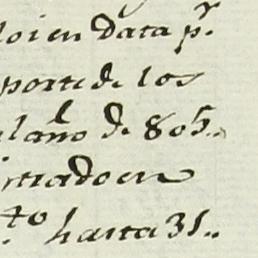 doi en Data pr.
porte de los
el año de 805..
ntrado en
to. hasta 31..